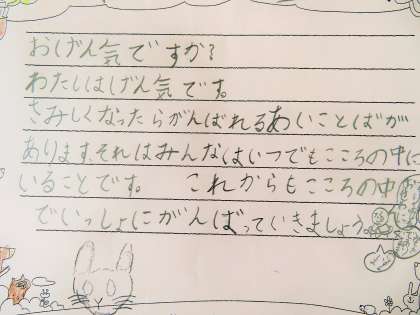 おげん気ですか?
わたしはげん気です。
さみしくなったらがんばれるあいことばが
あります、それはみんなはいつでもこころの中に
いることです。 これからもこころの中
でいっしょにがんばっていきましょう。